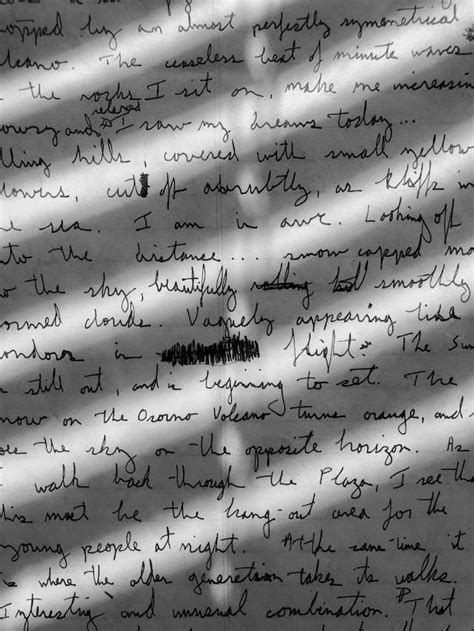 topped by an almost perfectly symmetrical
volcano. The ceaseless beat of minute waves
the rocks I sit on, make me increasin
relaxed
owsy and I saw my dreams today...
lling hills, covered with small yellow
lowers, cut off abruptly, as cliffs in
he sea. I am in awe. Looking off
nto the distance... snow capped mo
the sky, beautifully smoothly
ormed clouds. Vaguely appearing like
ondors in flight. The Sun
still out, and is beginning to set. The
now on the Osorno Volcano turns orange, and
oes the sky on the opposite horizon. As
walk back through the Plaza, I see tha
his must be the hang-out area for the
young people at night. At the same time, it
is where the older generation takes its walks.
Interesting and unusual combination. That